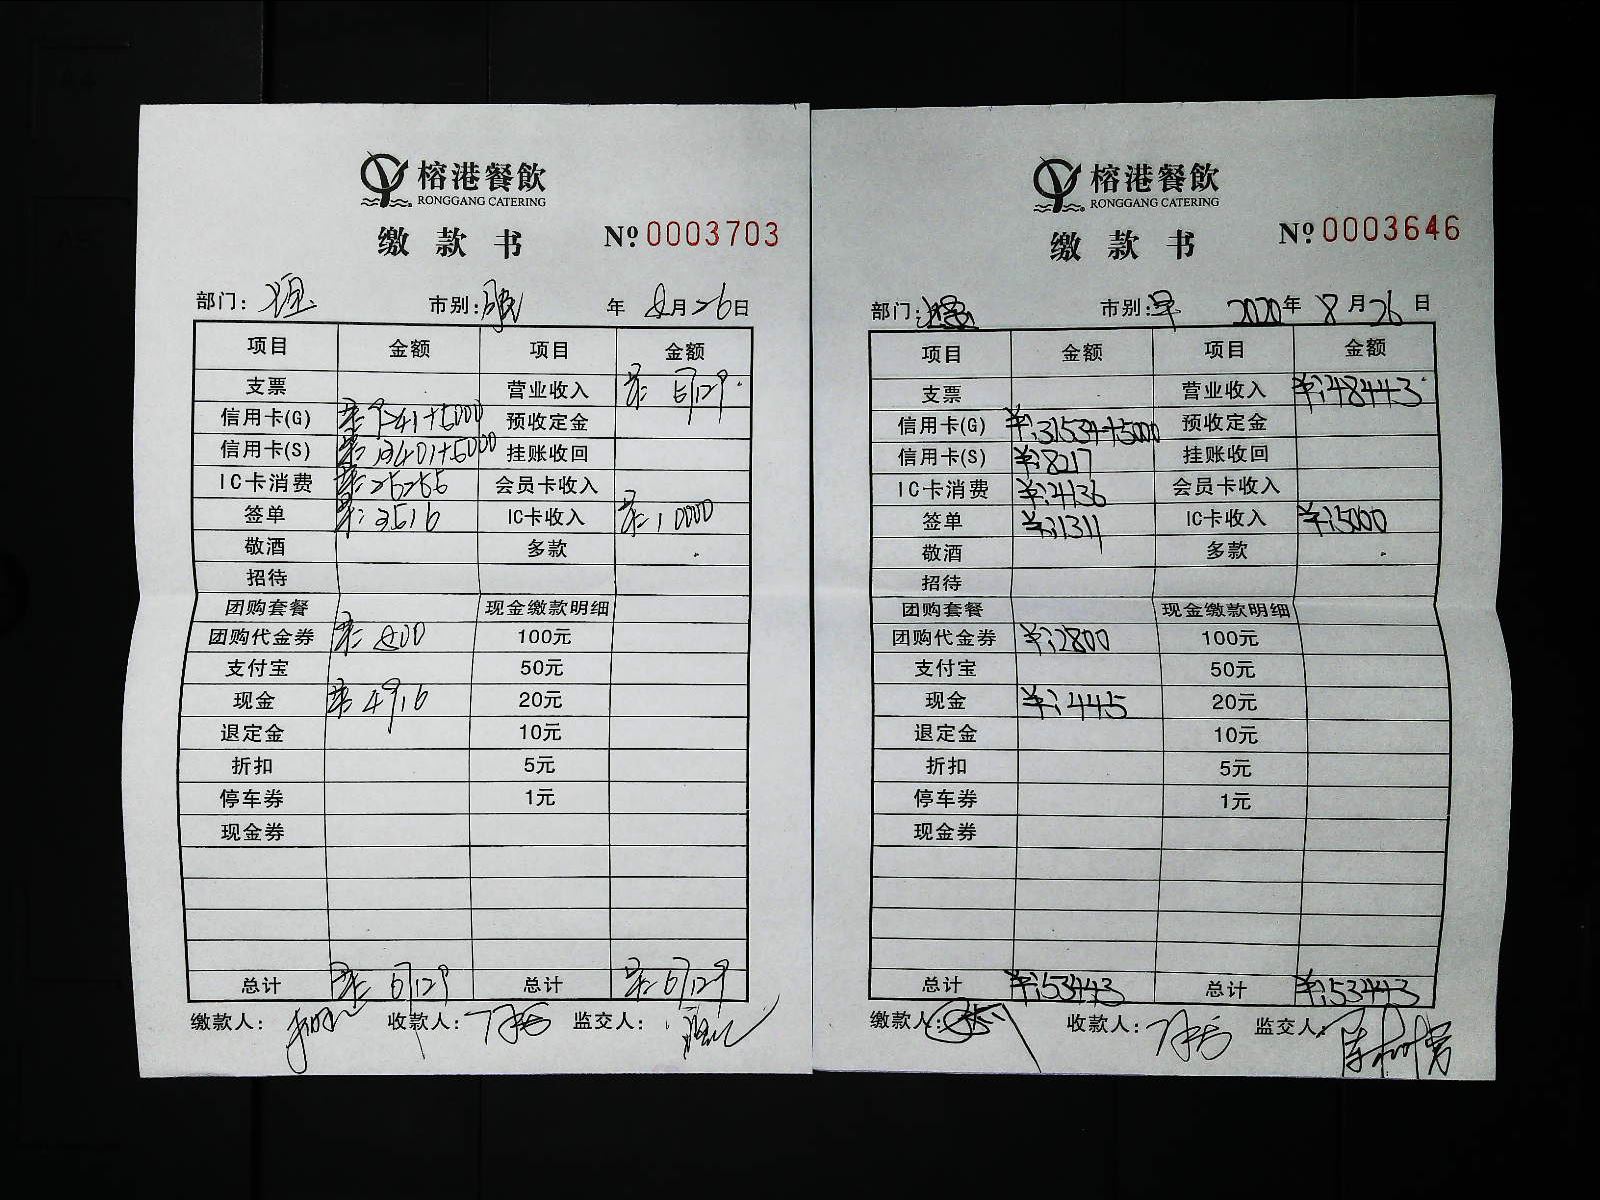 榕港餐飲
RONGGANG CATERING
缴款书 № 0003703
部门: 市别: 晚 年 8月26日
项目 金额 项目 金额
支票 营业收入 ¥: 51129
信用卡(G) 预收定金
信用卡(S) 挂账收回
IC卡消费 ¥:25255 会员卡收入
签单 ¥:3516 IC卡收入 ¥:10000
敬酒 多款
招待
团购套餐 现金缴款明细
团购代金券 ¥:800 100元
支付宝 50元
现金 ¥:4916 20元
退定金 10元
折扣 5元
停车券 1元
现金券
总计 ¥: 61129 总计 ¥: 61129
缴款人: 收款人: 监交人:
榕港餐飲
RONGGANG CATERING
缴款书 № 0003646
部门: 市别: 早 2020年 8月26日
项目 金额 项目 金额
支票 营业收入 ¥:48443
信用卡(G) ¥:31534+5000 预收定金
信用卡(S) ¥:8217 挂账收回
IC卡消费 ¥:4136 会员卡收入
签单 ¥:1311 IC卡收入 ¥:5000
敬酒 多款
招待
团购套餐 现金缴款明细
团购代金券 ¥:2800 100元
支付宝 50元
现金 ¥:445 20元
退定金 10元
折扣 5元
停车券 1元
现金券
总计 ¥:53443 总计 ¥:53443
缴款人: 收款人: 监交人: